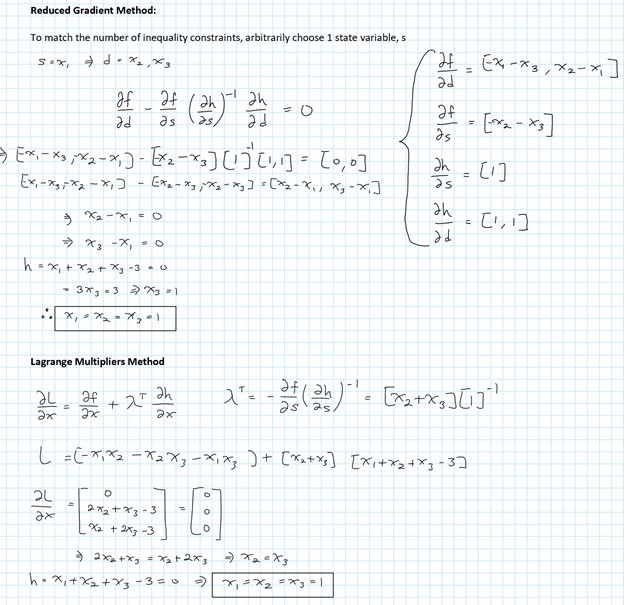 Reduced Gradient Method:
To match the number of inequality constraints, arbitrarily choose 1 state variable, s
s = x₁ ⇒ d = x₂, x₃
∂f/∂d - ∂f/∂s (∂h/∂s)⁻¹ ∂h/∂d = 0
⇒ [-x₁-x₃, -x₂-x₁] - [-x₂-x₃][1]⁻¹[1,1] = [0,0]
[-x₁-x₃, -x₂-x₁] - [-x₂-x₃, -x₂-x₃] = [x₂-x₁, x₃-x₁]
⇒ x₂-x₁ = 0
⇒ x₃-x₁ = 0
h = x₁+x₂+x₃-3 = 0
= 3x₃ = 3 ⇒ x₃ = 1
∴ x₁ = x₂ = x₃ = 1
∂f/∂d = [-x₁-x₃, x₂-x₁]
∂f/∂s = [-x₂-x₃]
∂h/∂s = [1]
∂h/∂d = [1,1]
Lagrange Multipliers Method
∂L/∂x = ∂f/∂x + λᵀ ∂h/∂x λᵀ = -∂f/∂s (∂h/∂s)⁻¹ = [x₂+x₃][1]⁻¹
L = (-x₁x₂ - x₂x₃ - x₁x₃) + [x₂+x₃] [x₁+x₂+x₃-3]
∂L/∂x = [0; 2x₂+x₃-3; x₂+2x₃-3] = [0; 0; 0]
⇒ 2x₂+x₃ = x₂+2x₃ ⇒ x₂ = x₃
h = x₁+x₂+x₃-3 = 0 ⇒ x₁ = x₂ = x₃ = 1